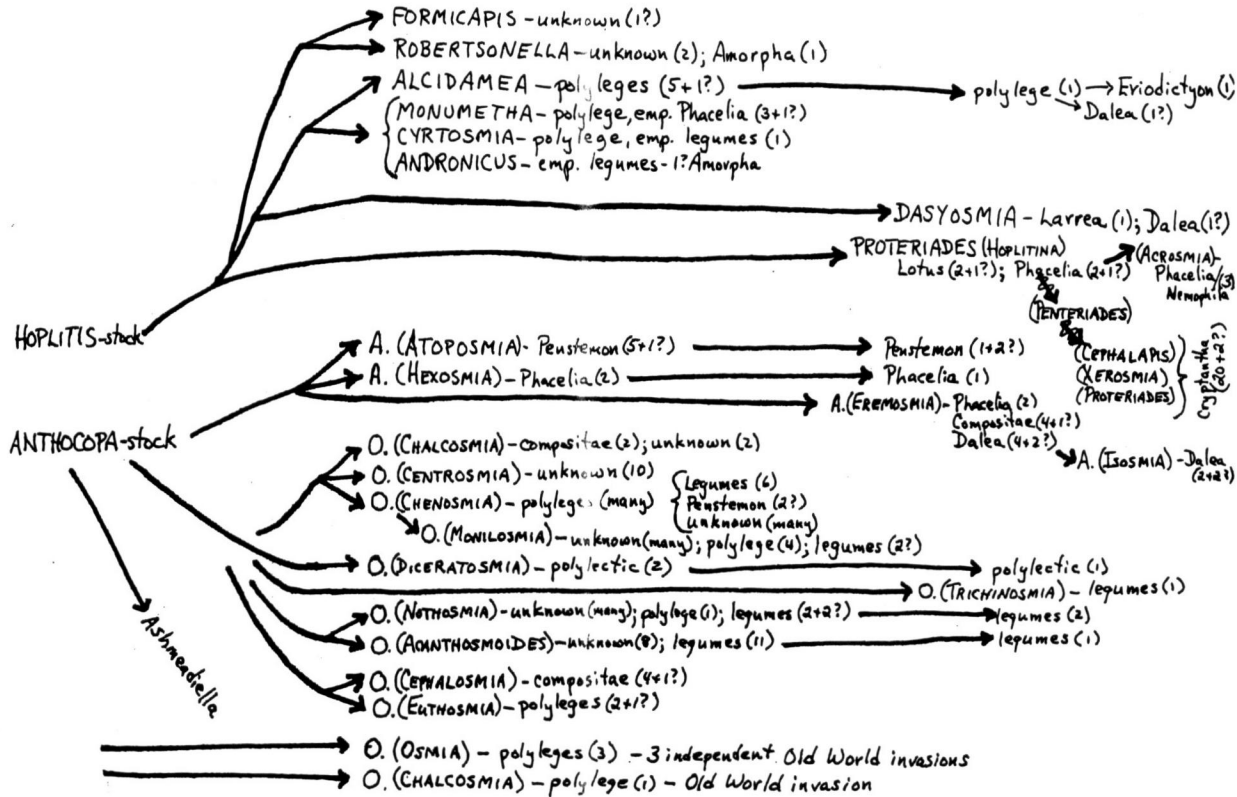 FORMICAPIS - unknown (1?)
ROBERTSONELLA - unknown (2); Amorpha (1)
ALCIDAMEA - polyleges (5+1?)
polylege (1) → Eriodictyon (1)
Dalea (1?)
MONUMETHA - polylege, emp. Phacelia (3+1?)
CYRTOSMIA - polylege, emp. legumes (1)
ANDRONICUS - emp. legumes - 1? Amorpha
DASYOSMIA - Larrea (1); Dalea (1?)
PROTERIADES (HOPLITINA)
Lotus (2+1?); Phacelia (2+1?)
(ACROSMIA)-
Phacelia/(3)
Nemophila
(PENTERIADES)
HOPLITIS-stock
(CEPHALAPIS)
(XEROSMIA)
(PROTERIADES)
Cryptantha
(20+2?)
A. (ATOPOSMIA) - Penstemon (5+1?)
Penstemon (1+2?)
A. (HEXOSMIA) - Phacelia (2)
Phacelia (1)
A. (EREMOSMIA) - Phacelia (2)
Compositae (4+1?)
Dalea (4+2?)
A. (ISOSMIA) - Dalea
(2+2?)
ANTHOCOPA-stock
O. (CHALCOSMIA) - compositae (2); unknown (2)
O. (CENTROSMIA) - unknown (10)
O. (CHENOSMIA) - polyleges (many)
Legumes (6)
Penstemon (2?)
unknown (many)
O. (MONILOSMIA) - unknown (many); polylege (4); legumes (2?)
O. (DICERATOSMIA) - polylectic (2)
polylectic (1)
O. (TRICHINOSMIA) - legumes (1)
O. (NOTHOSMIA) - unknown (many); polylege (1); legumes (2+2?)
legumes (2)
O. (ACANTHOSMOIDES) - unknown (8); legumes (11)
legumes (1)
Ashmeadiella
O. (CEPHALOSMIA) - compositae (4+1?)
O. (EUTHOSMIA) - polyleges (2+1?)
O. (OSMIA) - polyleges (3) - 3 independent Old World invasions
O. (CHALCOSMIA) - polylege (1) - Old World invasion